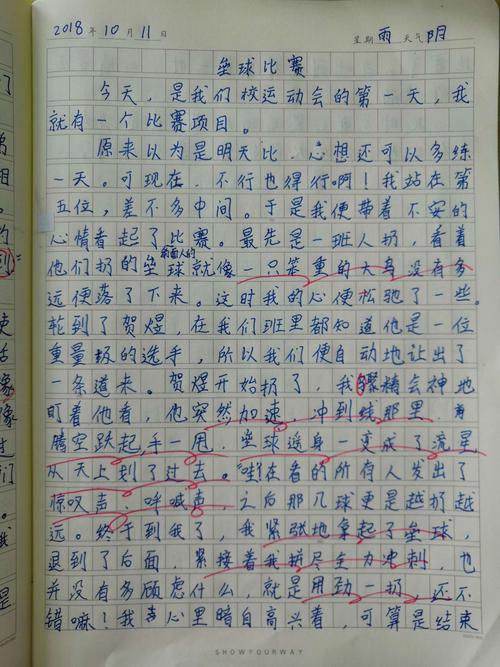 2018年10月11日 星期 雨 天气 阴
垒球比赛
今天，是我们校运动会的第一天，我
就有一个比赛项目。
原来以为是明天比，心想还可以多练
一天。可现在，不行也得行啊！我站在第
五位，差不多中间。于是我便带着不安的
心情看起了比赛。最先是一班人扔，看着
前面人的
他们扔的垒球就像一只笨重的大鸟没有多
远便落了下来。这时我的心便松驰了一些。
轮到了贺煜，在我们班里都知道他是一位
重量级的选手，所以我们便自动地让出了
一条道来。贺煜开始扔了，我聚精会神地
盯着他看，他突然加速，冲到线那里，
腾空跃起，手一甩，垒球遥身一变成了流星
从天上到了过去。"哇！在看的所有人发出了
惊叹声、呼喊声，之后那几球更是越扔越
远。终于到我了，我紧张地拿起了垒球，
退到了后面，紧接着我拼尽全力冲刺，也
并没有多顾虑什么，就是用劲一扔，还不
错嘛！我心里暗自高兴着，可算是结束
SHOWYOURWAY